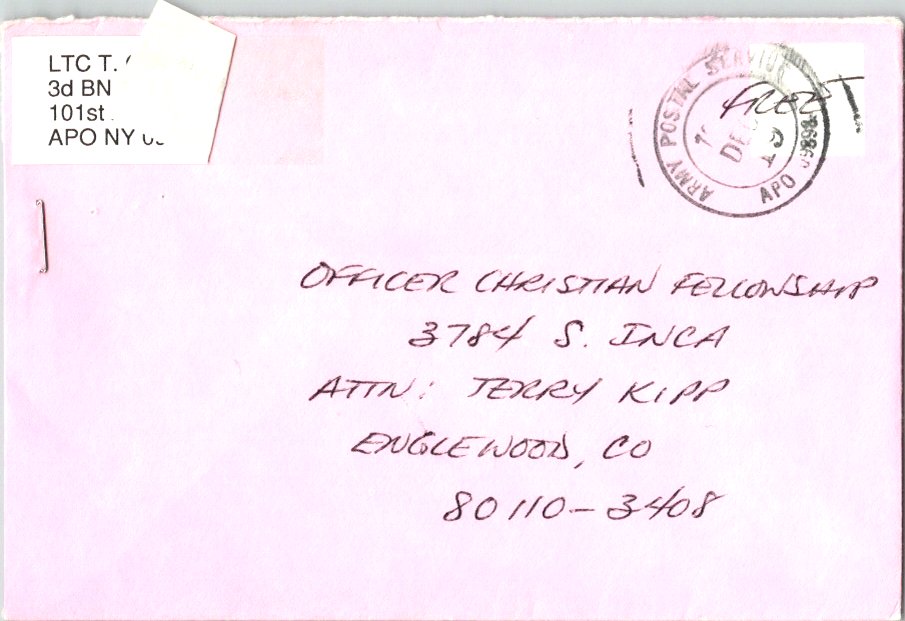 LTC T.
3d BN
101st
APO NY
ARMY POSTAL SERVICE
FREE
DEC
APO
OFFICER CHRISTIAN FELLOWSHIP
3784 S. INCA
ATTN: TERRY KIPP
ENGLEWOOD, CO
80110-3408